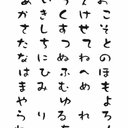 おこそとのほもよろ
えけせてねへめれ
うくすつぬふむゆる
いきしちにひみり
あかさたなはまやら